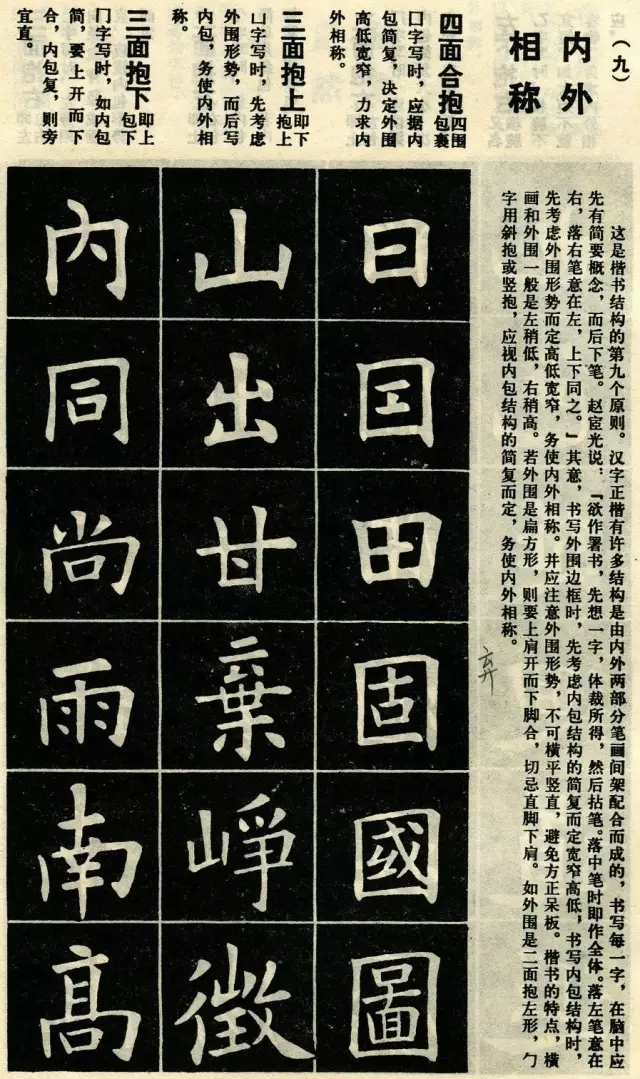 (九)
内外
相称
这是楷书结构的第九个原则。汉字正楷有许多结构是由内外两部分笔画间架配合而成的，书写每一字，在脑中应
先有简要概念，而后下笔。赵宧光说：『欲作署书，先想一字，体裁所得，然后拈笔。落中笔时即作全体。落左笔意在
右，落右笔意在左，上下同之。』其意，书写外围边框时，先考虑内包结构的简复而定宽窄高低，书写内包结构时，
先考虑外围形势而定高低宽窄，务使内外相称。并应注意外围形势，不可横平竖直，避免方正呆板。楷书的特点，横
画和外围一般是左稍低，右稍高。若外围是扁方形，则要上肩开而下脚合，切忌直脚下肩。如外围是二面抱左形，勹
字用斜抱或竖抱，应视内包结构的简复而定，务使内外相称。
弃
四面合抱 四围
包裹
囗字写时，应据内
包简复，决定外围
高低宽窄，力求内
外相称。
三面抱上 即下
抱上
凵字写时，先考虑
外围形势，而后写
内包，务使内外相
称。
三面抱下 即上
包下
冂字写时，如内包
简，要上开而下
合，内包复，则旁
宜直。
日
国
田
固
國
圖
山
出
甘
棄
崢
徵
內
同
尚
雨
南
高